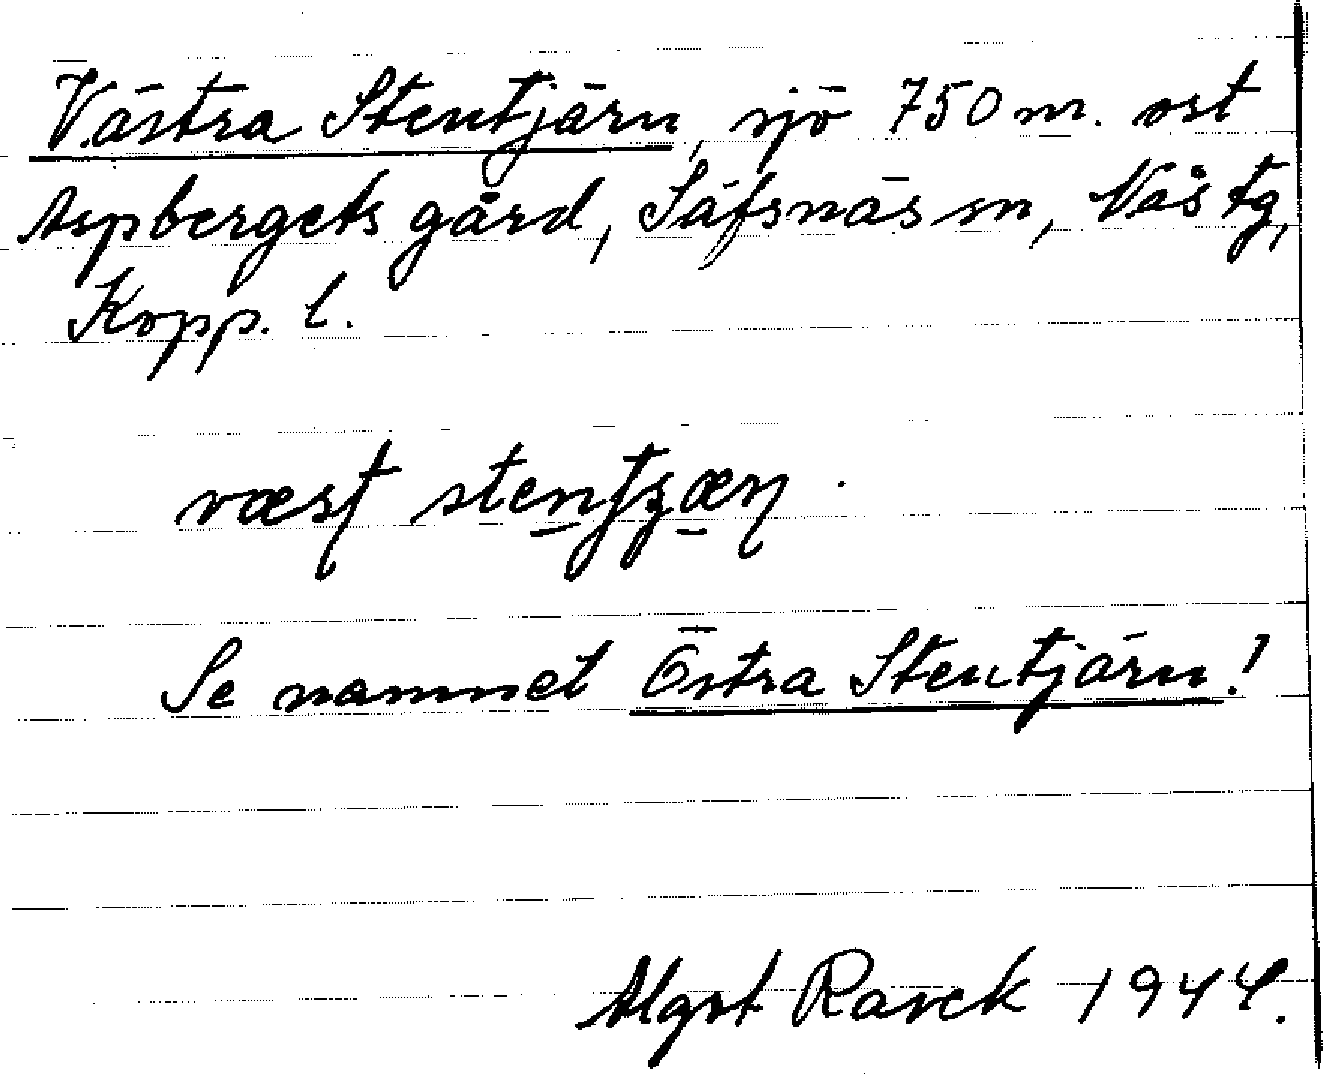 Västra Stentjärn, sjö 750 m. ost
Aspbergets gård, Säfsnäs sn, Nås tg,
Kopp. l.
væst stentʒæn.
Se namnet Östra Stentjärn!
Algot Rasck 1944.